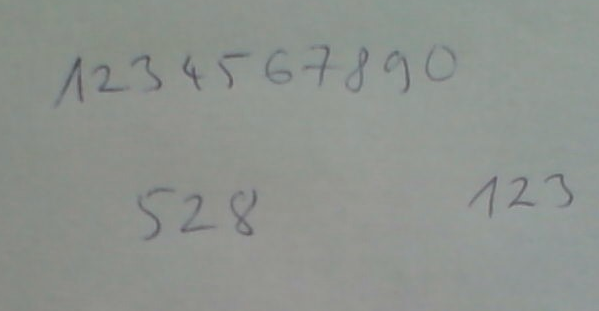 1234567890
528 123